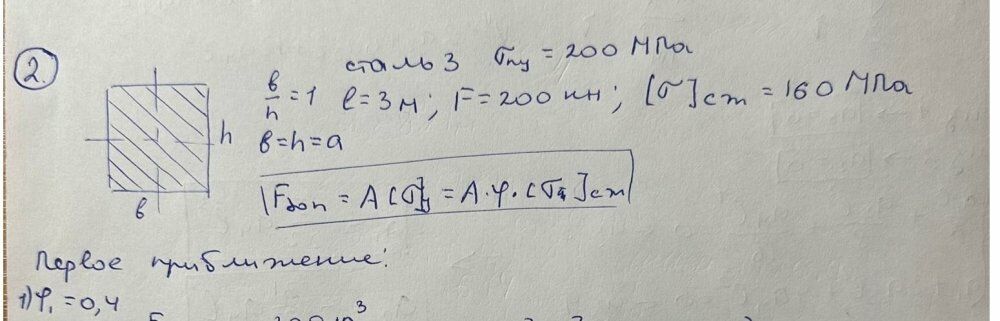 2.
сталь 3 σпу = 200 МПа
в/h = 1 l = 3 м; F = 200 кн; [σ]ст = 160 МПа
в = h = a
h
в
Fдоп = A[σ]у = A·φ·[σ]ст
Первое приближение:
1) φ₁ = 0,4